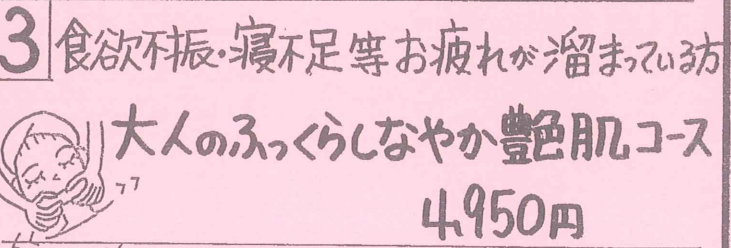 3 食欲不振・寝不足等お疲れが溜まっている方
大人のふっくらしなやか艶肌コース
4,950円